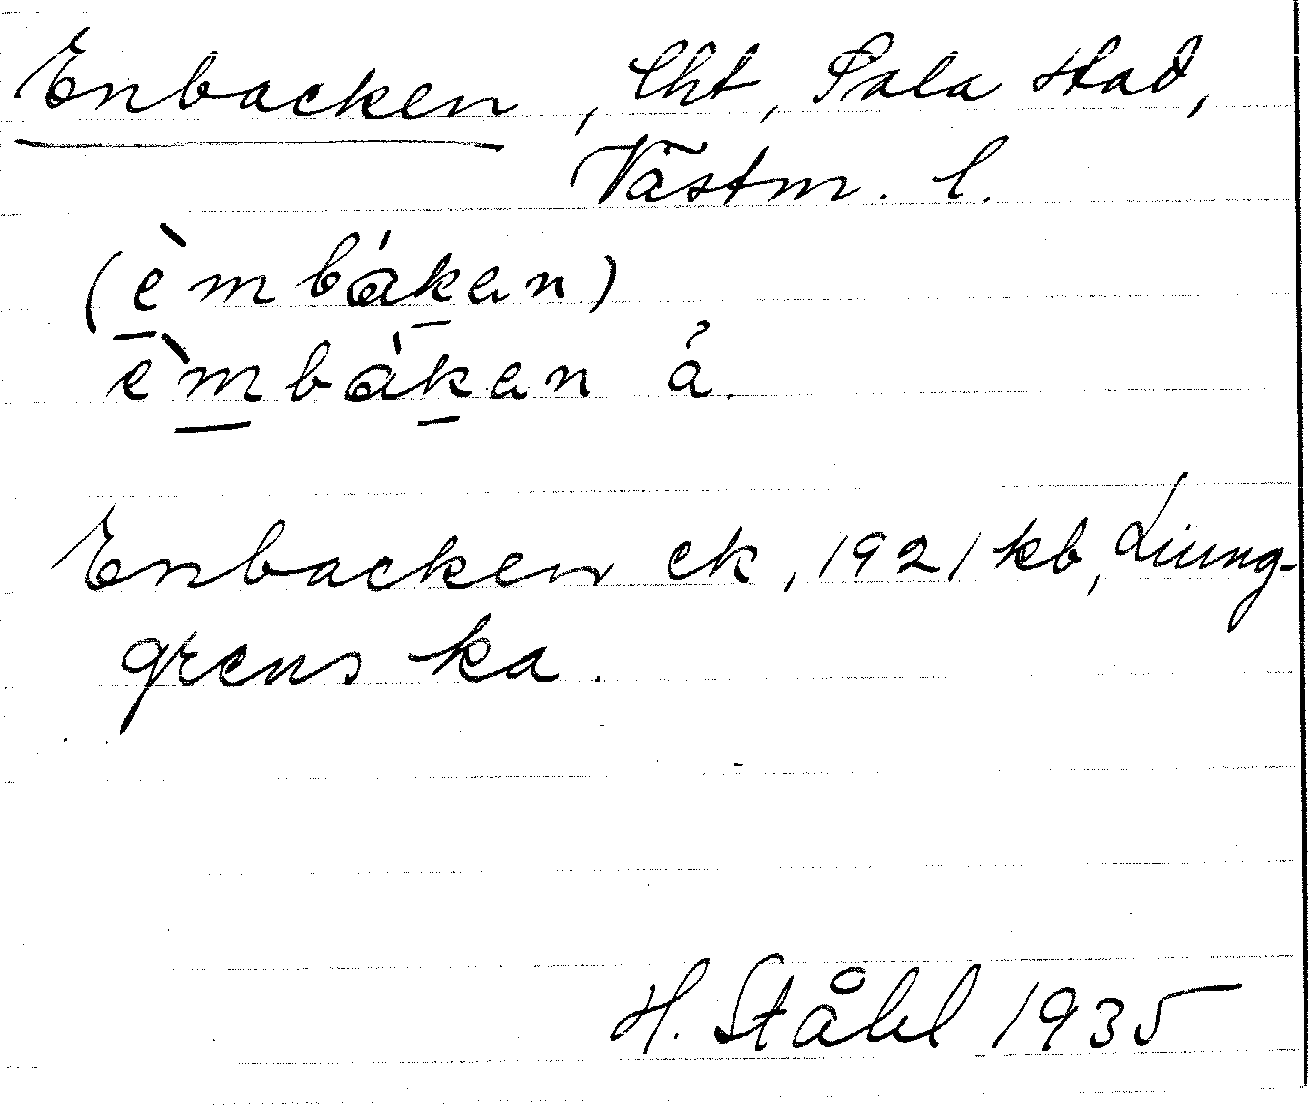 Enbacken, lht, Sala stad,
Västm. l.
(èmbákan)
èmbákan å.
Enbacken ek, 1921 kb, Ljung-
grens ka.
H. Ståhl 1935